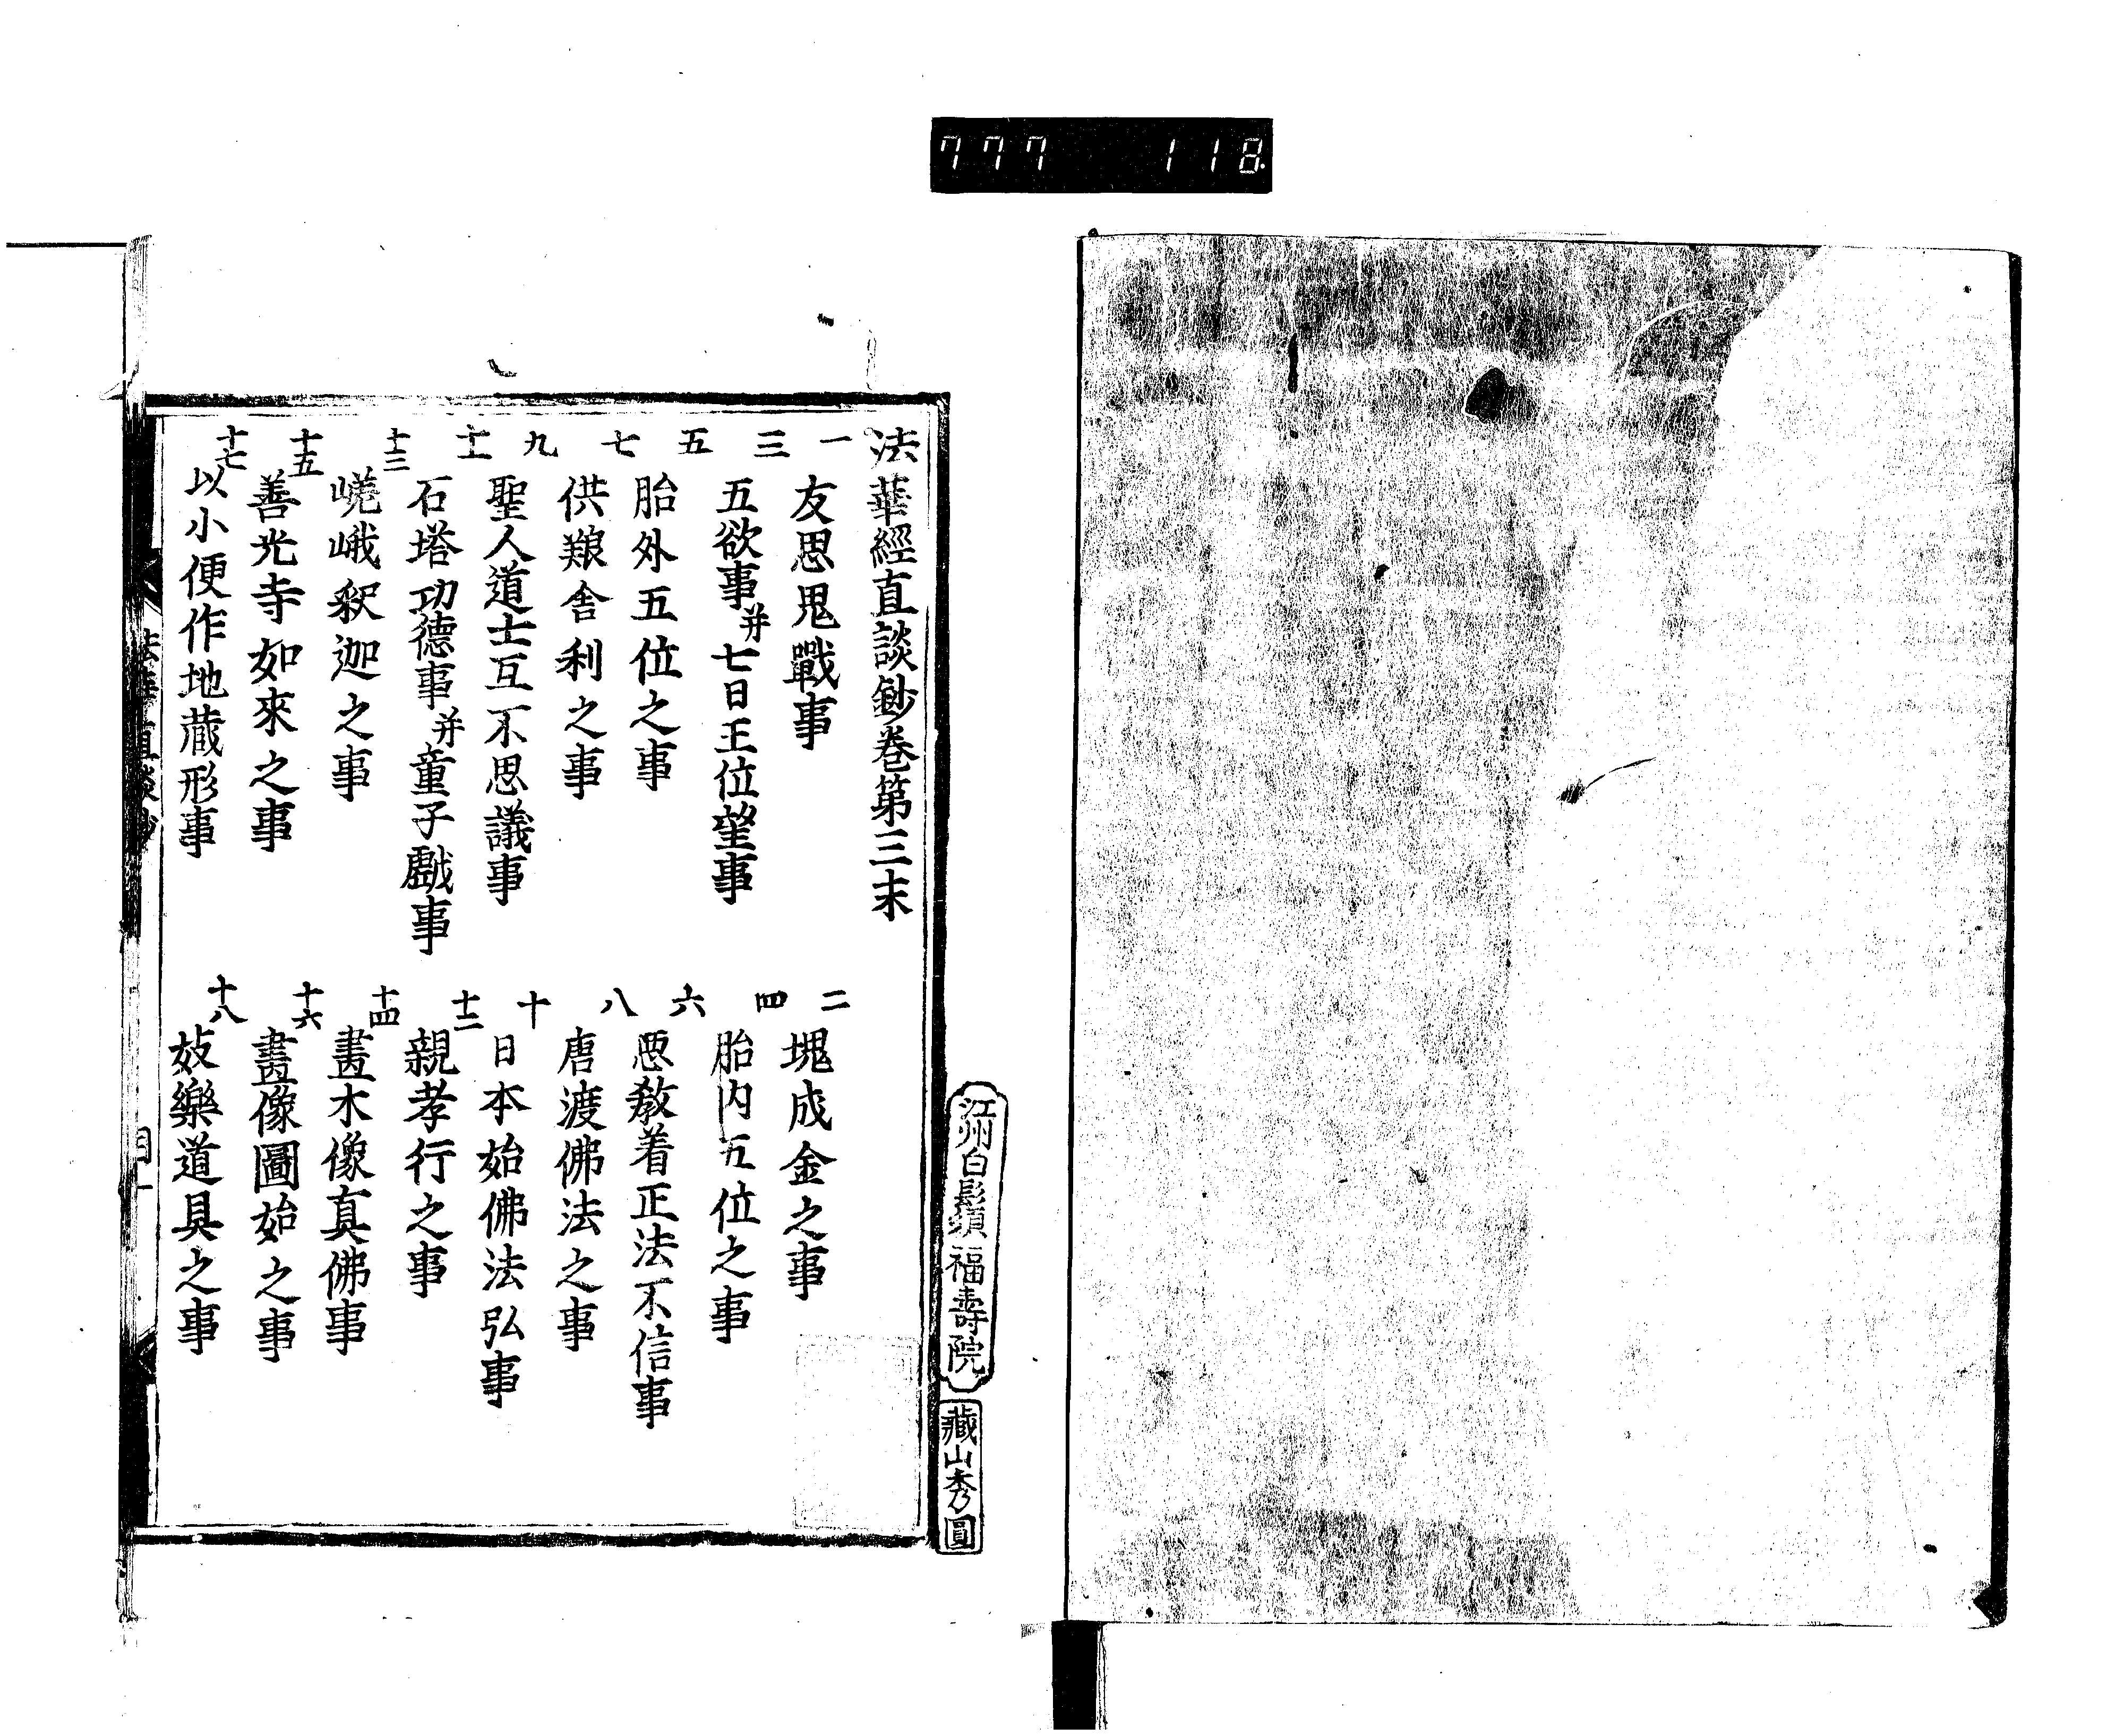 777 118
法華經直談鈔卷第三末
一 友思鬼戰事
二 塊成金之事
三 五欲事并七日王位望事
四 胎内五位之事
五 胎外五位之事
六 悪教着正法不信事
七 供粮舎利之事
八 唐渡佛法之事
九 聖人道士互不思議事
十 日本始佛法弘事
十一 石塔功德事并童子戯事
十二 親孝行之事
十三 嵯峨釈迦之事
十四 畫木像真佛事
十五 善光寺如來之事
十六 畫像圖始之事
十七 以小便作地藏形事
十八 妓樂道具之事
江州白鬚福壽院
藏山秀圓